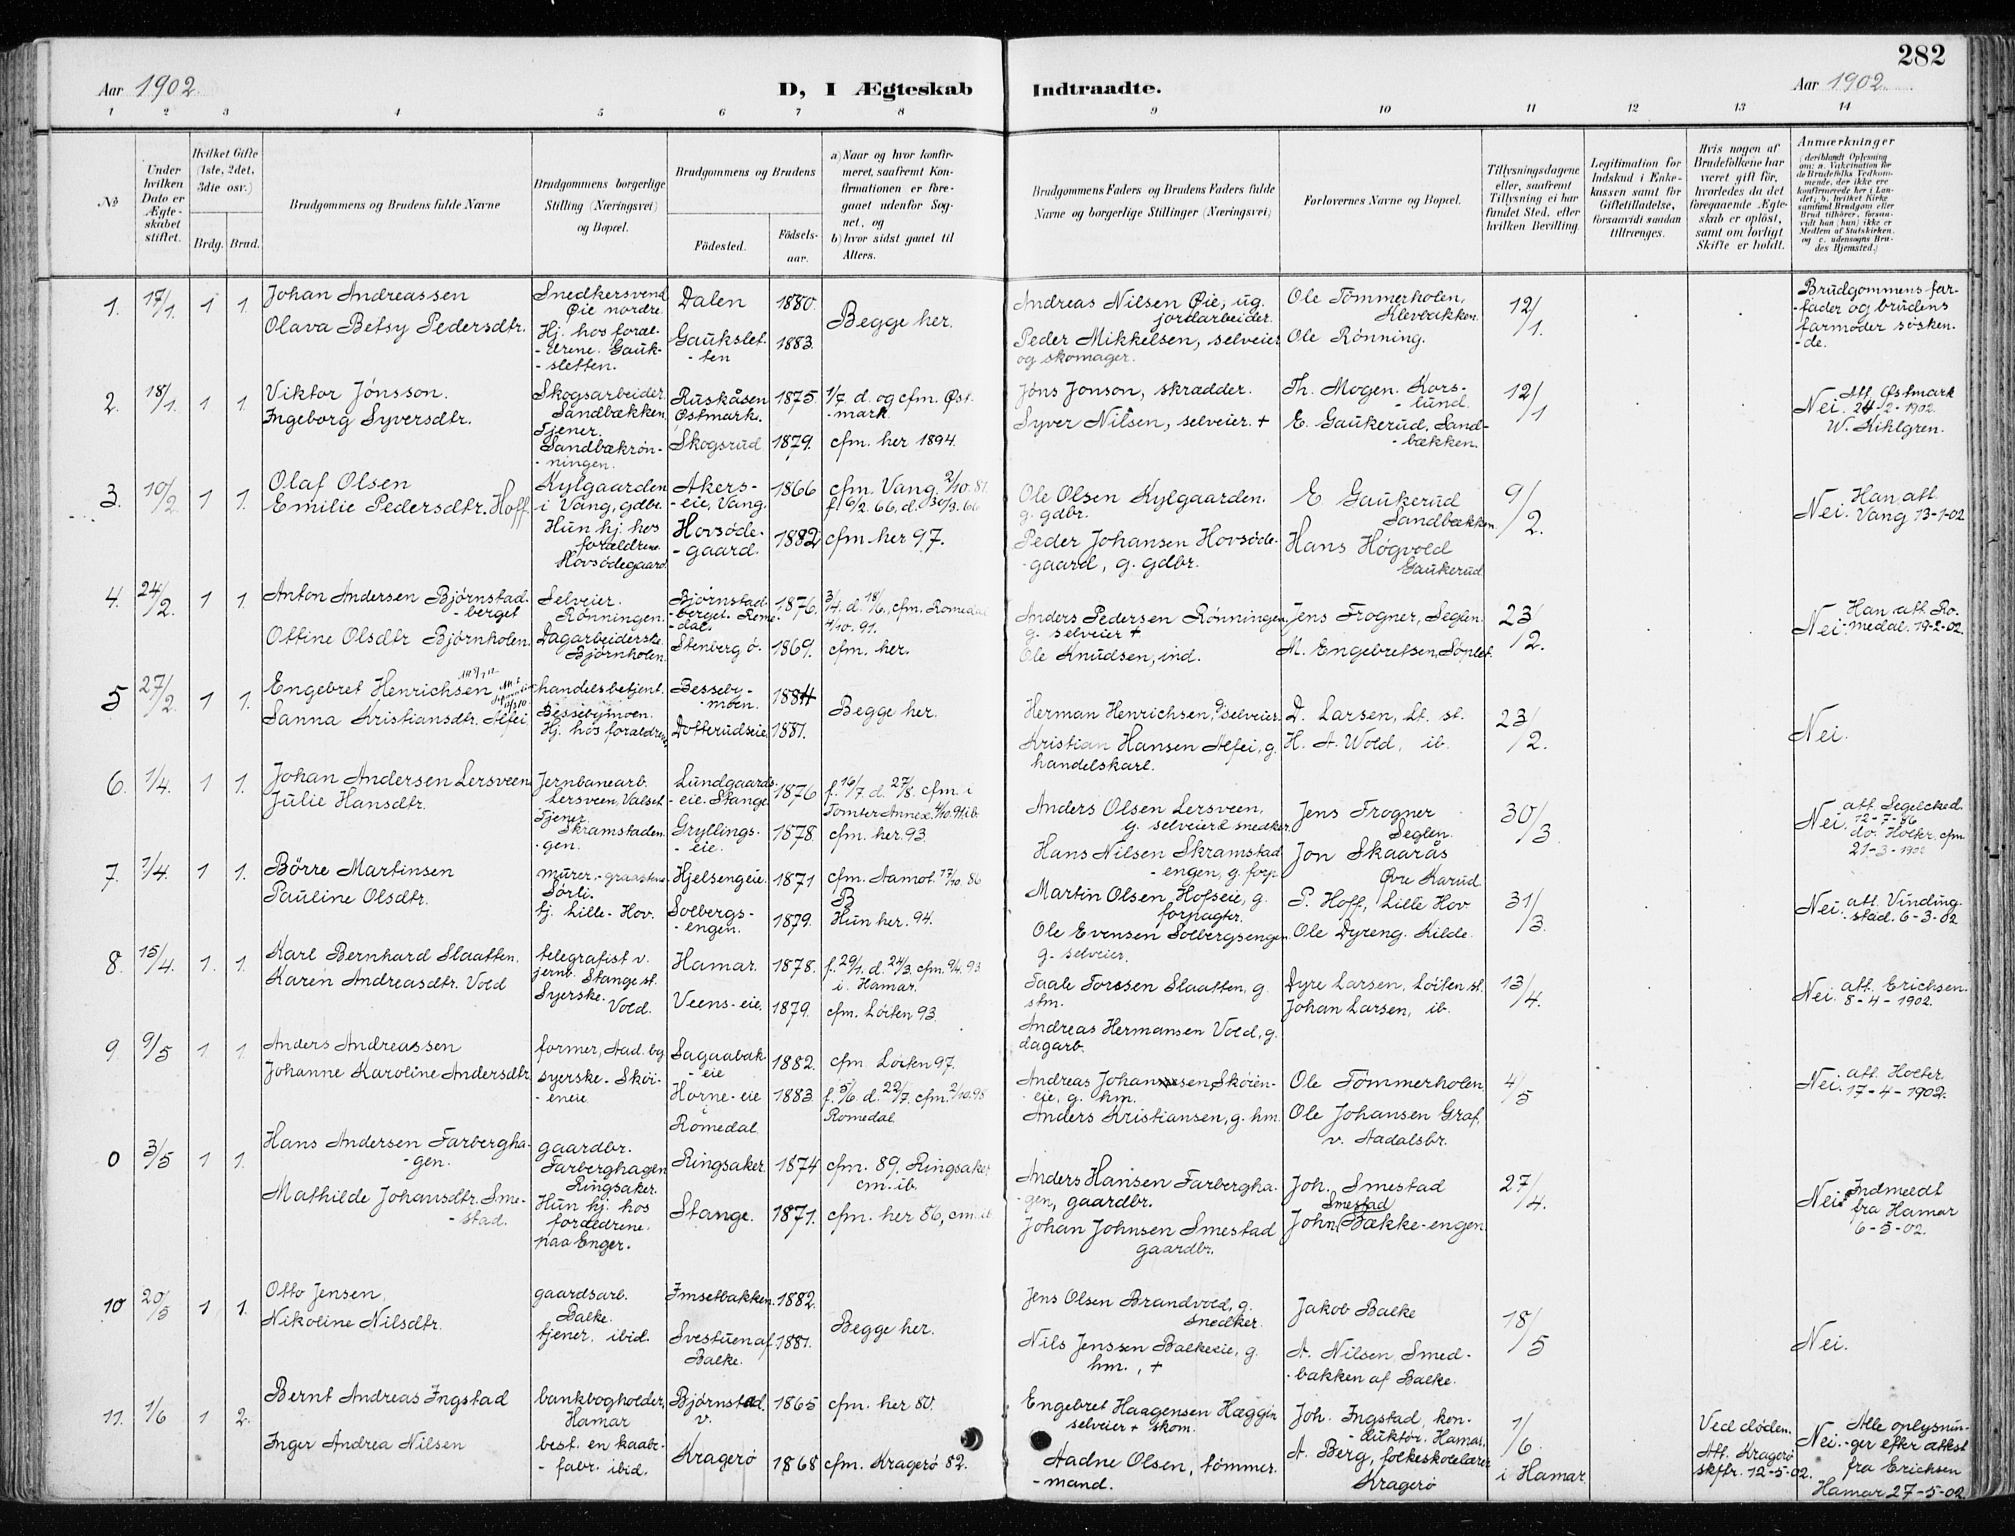 282
Aar 1902
D, I Ægteskab
Indtraadte.
Aar 1902
1 2 3 4 5 6 7 8 9 10 11 12 13 14
№
Under hvilken Dato er Ægteskabet stiftet.
Hvilket Gifte (1ste, 2det, 3die osv.)
Brdg. Brud.
Brudgommens og Brudens fulde Navne
Brudgommens borgerlige Stilling (Næringsvei) og Bopæl.
Brudgommens og Brudens
Födested.
Födsels-aar.
a) Naar og hvor konfirmeret, saafremt Konfirmationen er foregaaet udenfor Sognet, og
b) hvor sidst gaaet til Alters.
Brudgommens Faders og Brudens Faders fulde Navne og borgerlige Stillinger (Næringsvei)
Forlovernes Navne og Bopæl.
Tillysningsdagene eller, saafremt Tillysning ei har fundet Sted, efter hvilken Bevilling.
Legitimation for Indskud i Enkekassen samt for Giftetilladelse, forsaavidt saadan tiltrænges.
Hvis nogen af Brudefolkene har været gift för, hvorledes da det foregaaende Ægteskab er oplöst, samt om lovligt Skifte er holdt.
Anmærkninger
(deriblandt Oplysning om: a. Vakcination for de Brudefolks Vedkommende, der ikke ere konfirmerede her i Landet; b. hvilket Kirkesamfund Brudgom eller Brud tilhörer, forsaavidt han (hun) ikke er Medlem af Statskirken, og c. udensogns Brudes Hjemsted.)
1. 17/1. 1 1.
Johan Andreassen
Olava Betsy Pedersdtr.
Snedkersvend
Øie nordre.
Hj. hos foræl-
-drene. Gauk-
-sletten.
Dalen 1880.
Gaukslet-
-ten 1883.
Begge her.
Andreas Nilsen Øie, ug.
jordarbeider.
Peder Mikkelsen, selveier
og skomager.
Ole Tömmerholen,
Klevbakken.
Ole Rønning.
12/1.
Brudgommens far-
-fader og brudens
farmoder søsken-
-de.
2. 18/1. 1 1.
Viktor Jónsson.
Ingeborg Syversdtr.
Skogsarbeider.
Sandbækken.
Tjener.
Sandbækrön-
-ningen.
Ruskåsen
Østmark. 1875.
Skogsrud 1879.
1/7 d. og cfm. Øst-
-mark.
cfm. her 1894.
Jóns Jonson, skrædder.
Syver Nilsen, selveier. +
Th. Mogen. Kors-
-lund.
E. Gaukerud, Sand-
-bækken.
12/1
Nei. Att. Østmark
24-2-1902.
W. Kihlgren.
3. 10/2 1 1.
Olaf Olsen
Emilie Pedersdtr. Hoff.
Kylgaarden
i Vang, gdbr.
Hun hj. hos
forældrene
Hovsödegaard.
Akers-
-eie, Vang. 1866
Hovsøde-
-gaard. 1882
cfm. Vang. 2/10. 81.
f. 6/2. 66, d. 30/3. 66
cfm. her 97.
Ole Olsen Kylgaarden.
g. gdbr.
Peder Johansen Hovsøde-
-gaard, g. gdbr.
E Gaukerud
Sandbækken.
Hans Høgvold
Gaukerud
9/2.
Nei. Han att.
Vang 13-1-02
4. 24/2. 1 1.
Anton Andersen Bjørnstad-
-berget
Ottine Olsdtr Bjørnholen.
Selveier.
Rönningen.
Dagarbeiderske
Bjørnholen.
Bjørnstad-
-berget. Rome-
-dal. 1876.
Stenberg ö. 1869.
3/4. d. 18/6, cfm. Romedal
4/10. 91.
cfm. her.
Anders Pedersen Rönningen
g. selveier +
Ole Knudsen, ind.
Jens Frogner, Seglen.
M. Engebretsen,
23/2.
Nei. Han att. Ro-
medal. 19-2-02.
5 27/2. 1 1.
Engebret Henrichsen
Sanna Kristiansdtr. Alfei
handelsbetjent.
Bessebymoen.
Hj. hos forældrene.
Besseby-
-moen. 1884
Dofterudseie 1881.
Begge her.
Herman Henrichsen, g. selveier.
Kristian Hansen Alfei, g.
handelskarl.
D. Larsen, Lt. st.
H. A. Wold, ib.
23/2.
Nei.
6. 1/4. 1 1.
Johan Andersen Lersveen
Julie Hansdtr.
Jernbanearb.
Lersveen, Valset.
Tjener.
Skramstaden-
-gen.
Lundgaards-
-eie. Stange 1876
Gryllings-
-eie. 1878.
f. 16/7. d. 27/8. cfm. i
Tomter Annex. 4/10. 91 ib.
cfm. her. 93.
Anders Olsen Lersveen,
g. selveier & snedker.
Hans Nilsen Skramstad-
-engen, g. forp.
Jens Frogner
Seglen.
Jon Skaarås
Øvre Karud.
30/3.
Nei. att. Segelcked.
12-7-86
do. Holter, cfm
21-3-1902
7. 7/4. 1 1.
Børre Martinsen
Pauline Olsdtr.
murer.
Sörli.
tj. Lille-Hov.
Hjelsengeie. 1871
Solbergs-
-engen. 1879.
cfm. Aamot. 17/10. 86
B
Hun her. 94.
Martin Olsen, Hofseie, g.
forpagtr.
Ole Evensen Solbergsengen
g. selveier.
P. Hoff, Lille Hov
Ole Dyreng. Kilde.
31/3.
Nei. att. Vinding-
stad. 6-3-02
8. 15/4. 1. 1.
Karl Bernhard Slaatten.
Karen Andreasdtr. Vold
telegrafist v.
jernb. Stange st.
Syerske.
Vold.
Hamar. 1878.
Veens-eie. 1879.
f. 29/1. d. 24/3. cfm. 9/4. 93
i Hamar.
cfm. Löiten 93.
Taale Torssen Slaatten, g.
stm.
Andreas Hermansen Vold, g.
dagarb.
Dyre Larsen, Löiten st.
Johan Larsen, ib.
13/4.
Nei. att. Erichsen.
8-4-1902.
9. 9/5 1 1.
Anders Andreassen
Johanne Karoline Andersdtr.
former, Aad. bg
syerske-Sköi-
-eneie
Sagaabak-
-eie 1882.
Horne-eie
i
Romedal 1883.
cfm. Löiten 97.
f. 5/6. d. 22/7. cfm. 2/10. 98
Romedal.
Andreas Johannessen, Sköien-
-eie, g. hm.
Anders Kristiansen, g. hm.
Ole Tömmerholen
Ole Johansen Graf.
v. Aadalsbr.
4/5
Nei. att. Holter
17-4-1902.
0 3/5 1 1.
Hans Andersen Farbergha-
-gen.
Mathilde Johansdtr. Sme-
-stad.
gaardbr.
Farberghagen
Ringsaker.
Hun hj. hos
forældrene.
paa Enger.
Ringsaker. 1874
Stange. 1871.
cfm. 89. Ringsaker
cm-ib.
cfm. her 86, cm. ib
Anders Hansen Farbergha-
-gen, gaardbr.
Johan Johnsen Smestad
gaardbr.
Joh. Smestad
Smestad
John Bække-engen.
27/4.
Nei. Indmeldt
fra Hamar
6-5-02.
10 20/5 1 1.
Otto Jensen,
Nikoline Nilsdtr.
gaardsarb.
Balke.
tjener, ibid.
Imsetbakken. 1882.
Svestuen af
Balke. 1881.
Begge her.
Jens Olsen Brandvold, g.
snedker.
Nils Jenssen Balkeeie, g.
hm., +
Jakob Balke
A. Nilsen, Smed-
-bakken af Balke.
18/5
Nei.
11. 1/6 1 2.
Bernt Andreas Ingstad
Inger Andrea Nilsen
bankbogholder,
Hamar
best. en kaabe-
-fabr. ibid.
Bjørnstad.
v. 1865
Kragerø 1868
cfm. her 80.
cfm. Kragerø 82.
Engebret Haagensen Hæggin
selveier + skom.
Aadne Olsen, tömmer.
-mand.
Joh. Ingstad, kon-
-duktör. Hamar.
A. Berg, folkeskolelærer
Kragerø
1/6.
i Hamar.
Ved döden.
Att. Kragerø
skftr. 12-5-02.
Nei. Alle oplysnin-
-ger efter attest
fra Erichsen
Hamar 27-5-02.